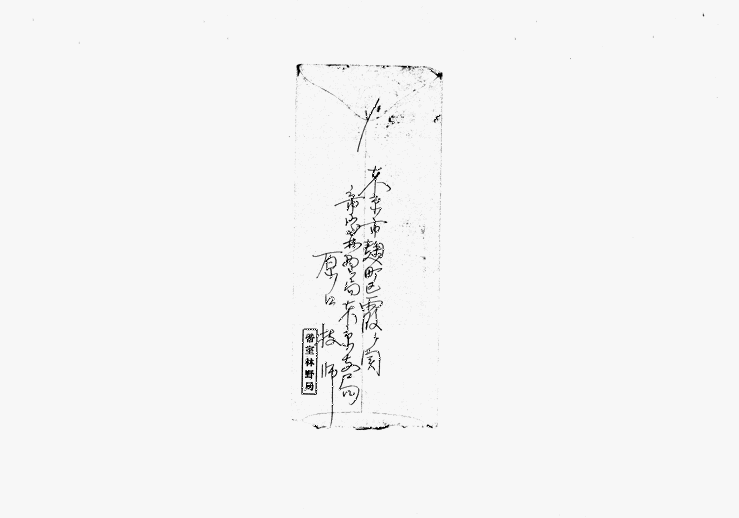 東京市麹町区霞ヶ関
帝室林野局東京支局
原口技師
帝室林野局